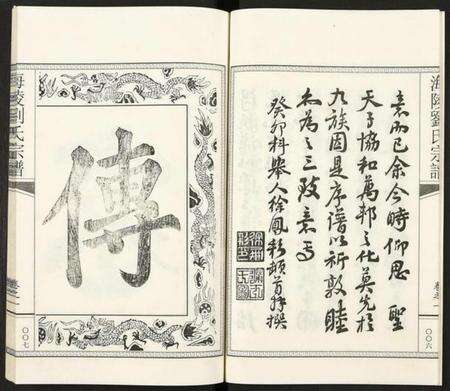 海陵劉氏宗譜
卷之一
〇〇六
意而已余今時仰思 聖
天子協和萬邦之化莫先於
九族因是序譜以祈敦睦
不為之三致意焉
癸卯科舉人徐鳳彩頓首拜撰
傳
海陵劉氏宗譜
卷之一
〇〇七